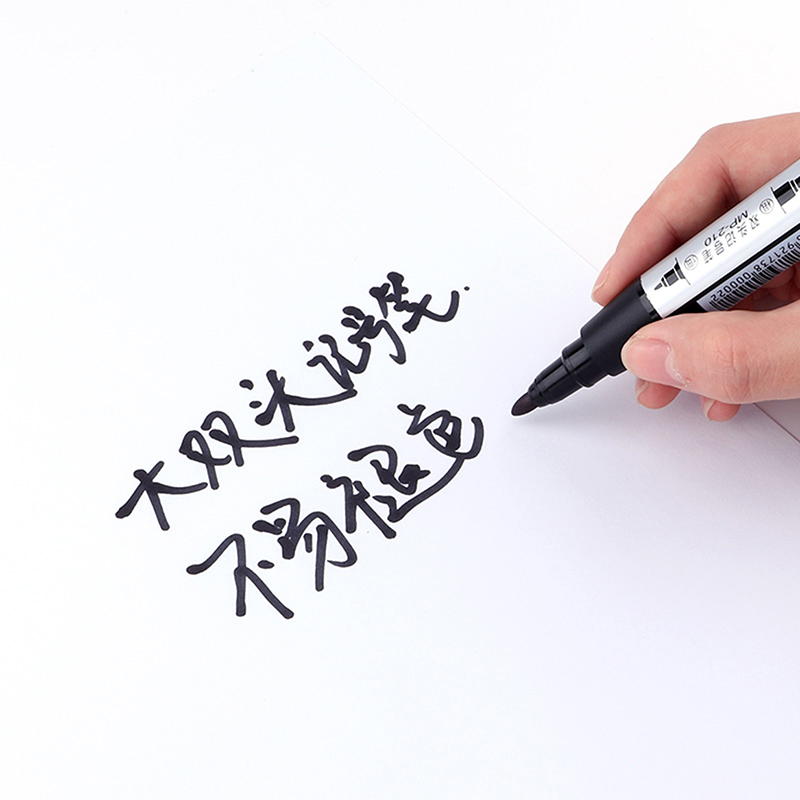 大双头记号笔.
不易褪色
MP-210
6921738000022